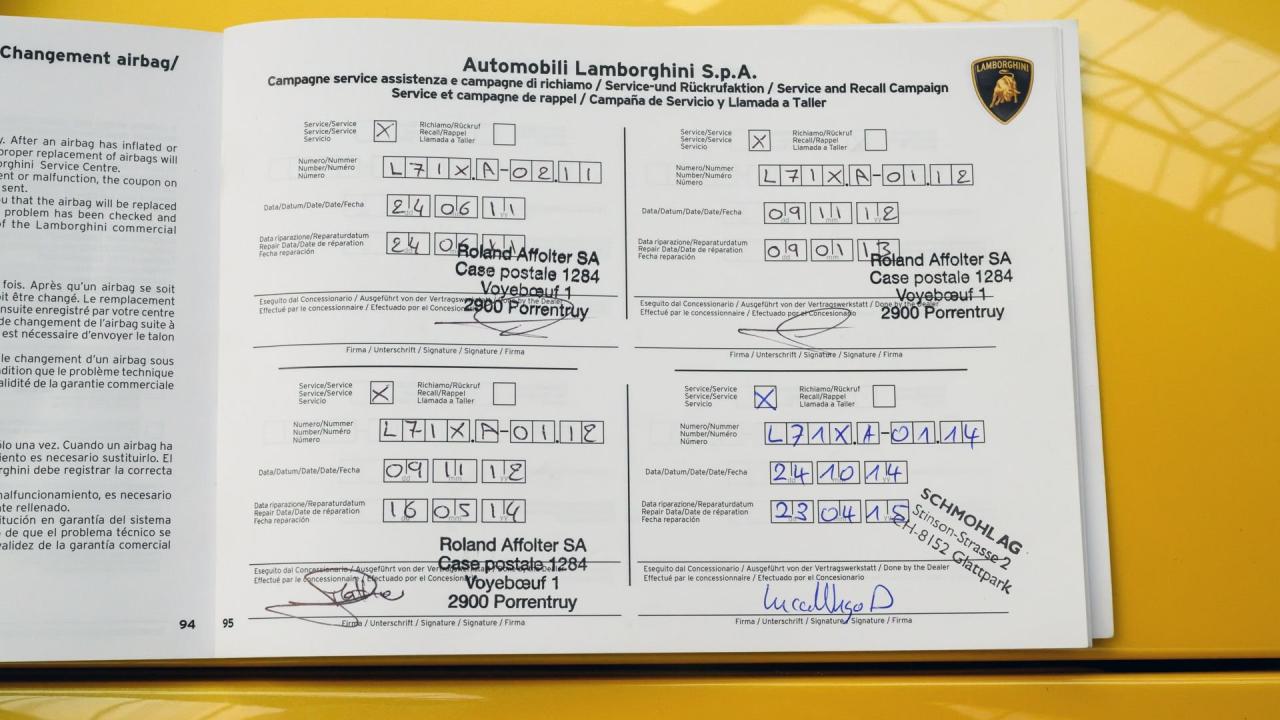 Changement airbag/
y. After an airbag has inflated or
proper replacement of airbags will
orghini Service Centre.
ent or malfunction, the coupon on
sent.
ou that the airbag will be replaced
problem has been checked and
of the Lamborghini commercial
fois. Après qu'un airbag se soit
oit être changé. Le remplacement
ensuite enregistré par votre centre
de changement de l'airbag suite à
est nécessaire d'envoyer le talon
le changement d'un airbag sous
dition que le problème technique
alidité de la garantie commerciale
ólo una vez. Cuando un airbag ha
iento es necesario sustituirlo. El
rghini debe registrar la correcta
malfuncionamiento, es necesario
nte rellenado.
titución en garantía del sistema
de que el problema técnico se
validez de la garantía comercial
94
95
Automobili Lamborghini S.p.A.
Campagne service assistenza e campagne di richiamo / Service-und Rückrufaktion / Service and Recall Campaign
Service et campagne de rappel / Campaña de Servicio y Llamada a Taller
LAMBORGHINI
Service/Service
Service/Service
Servicio
X
Richiamo/Rückruf
Recall/Rappel
Llamada a Taller
Numero/Nummer
Number/Numéro
Número
L71X.A-02.11
Data/Datum/Date/Date/Fecha
24 06 11
Data riparazione/Reparaturdatum
Repair Data/Date de réparation
Fecha reparación
24 06 11
Roland Affolter SA
Case postale 1284
Voyebœuf 1
2900 Porrentruy
Eseguito dal Concessionario / Ausgeführt von der Vertragswerkstatt / Done by the Dealer
Effectué par le concessionnaire / Efectuado por el Concesionario
Firma / Unterschrift / Signature / Signature / Firma
Service/Service
Service/Service
Servicio
X
Richiamo/Rückruf
Recall/Rappel
Llamada a Taller
Numero/Nummer
Number/Numéro
Número
L71X.A-01.12
Data/Datum/Date/Date/Fecha
09 11 12
Data riparazione/Reparaturdatum
Repair Data/Date de réparation
Fecha reparación
09 01 13
Roland Affolter SA
Case postale 1284
Voyebœuf 1
2900 Porrentruy
Eseguito dal Concessionario / Ausgeführt von der Vertragswerkstatt / Done by the Dealer
Effectué par le concessionnaire / Efectuado por el Concesionario
Firma / Unterschrift / Signature / Signature / Firma
Service/Service
Service/Service
Servicio
X
Richiamo/Rückruf
Recall/Rappel
Llamada a Taller
Numero/Nummer
Number/Numéro
Número
L71X.A-01.12
Data/Datum/Date/Date/Fecha
09 11 12
Data riparazione/Reparaturdatum
Repair Data/Date de réparation
Fecha reparación
16 05 14
Roland Affolter SA
Case postale 1284
Voyebœuf 1
2900 Porrentruy
Eseguito dal Concessionario / Ausgeführt von der Vertragswerkstatt / Done by the Dealer
Effectué par le concessionnaire / Efectuado por el Concesionario
Firma / Unterschrift / Signature / Signature / Firma
Service/Service
Service/Service
Servicio
X
Richiamo/Rückruf
Recall/Rappel
Llamada a Taller
Numero/Nummer
Number/Numéro
Número
L71X.A-01.14
Data/Datum/Date/Date/Fecha
24 10 14
Data riparazione/Reparaturdatum
Repair Data/Date de réparation
Fecha reparación
23 04 15
SCHMOHL AG
Stinson-Strasse 2
CH-8152 Glattpark
Eseguito dal Concessionario / Ausgeführt von der Vertragswerkstatt / Done by the Dealer
Effectué par le concessionnaire / Efectuado por el Concesionario
Firma / Unterschrift / Signature / Signature / Firma